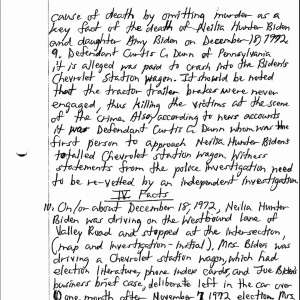 cause of death by omitting murder as a
key fact of the death of Neilia Hunter Biden
and daughter Amy Biden on December 18, 1972
9. Defendant Curtis C Dunn of Pennsylvania
it is alleged was paid to crash into the Biden's
Chevrolet Station wagon. It should be noted
that the tractor trailer brakes were never
engaged, thus killing the victims at the scene
of the crime. Also, according to news accounts
it was Defendant Curtis C. Dunn whom was the
first person to approach Neilia Hunter Biden's
totalled Chevrolet station wagon. Witness
statements from the police investigation need
to be re-vetted by an independent investigation.
IV Facts
10. On/or about December 18, 1972, Neilia Hunter
Biden was driving on the Westbound lane of
Valley Road and stopped at the intersection
(map and investigation-initial), Mrs. Biden was
driving a Chevrolet station wagon, which had
election literature, phone index cards, and Joe Biden's
business brief case, deliberate left in the car over
one month after November 7 1972 election. Mrs.